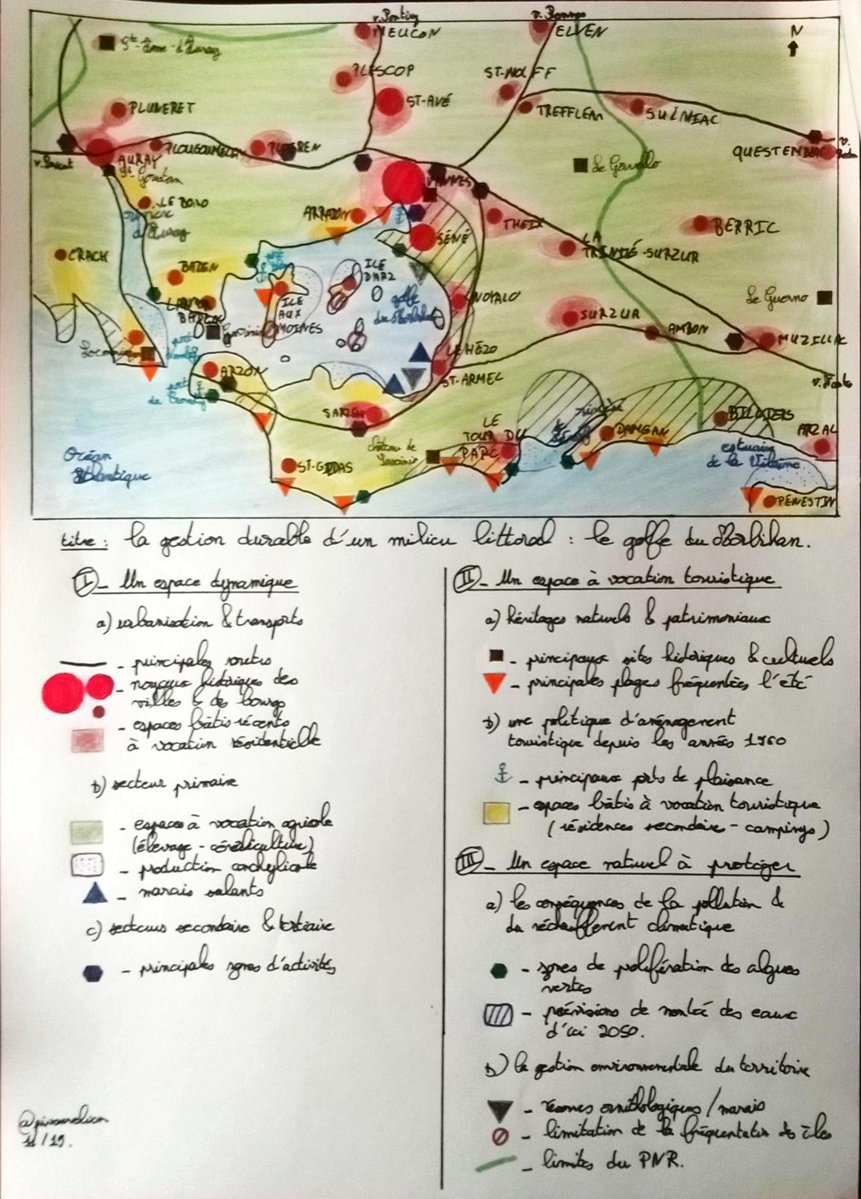 v. Pontivy
MEUCON
ELVEN
N
Ste-Anne-d'Auray
PLESCOP
ST-NOLFF
ST-AVÉ
TREFFLEAN
SULNIAC
PLUNERET
QUESTEMBERT
AURAY
PLOUGOUMELEN
PLOEREN
VANNES
Le Gorvello
St Goustan
LE BONO
rivière d'Auray
ARRADON
SÉNÉ
THEIX
BERRIC
CRACH
BADEN
ILE D'ARZ
LA TRINITÉ-SURZUR
LARMOR BADEN
ILE AUX MOINES
golfe du Morbihan
NOYALO
Le Guerno
SURZUR
AMBON
MUZILLAC
Gavrinis
Locmariaquer
ARZON
LE HÉZO
ST-ARMEL
SARZEAU
LE TOUR DU PARC
DAMGAN
BILLIERS
ARZAL
Océan Atlantique
ST-GILDAS
château de Suscinio
estuaire de la Vilaine
PÉNESTIN
titre : la gestion durable d'un milieu littoral : le golfe du Morbihan.
I - Un espace dynamique
a) urbanisation & transports
- principales routes
- noyaux historiques des
villes & des bourgs
- espaces bâtis récents
à vocation résidentielle
b) secteur primaire
- espaces à vocation agricole
(élevage - céréaliculture)
- production conchylicole
- marais salants
c) secteurs secondaire & tertiaire
- principales zones d'activités
@
11/19.
II - Un espace à vocation touristique
a) héritages naturels & patrimoniaux
- principaux sites historiques & culturels
- principales plages fréquentées l'été
b) une politique d'aménagement
touristique depuis les années 1960
- principaux ports de plaisance
- espaces bâtis à vocation touristique
(résidences secondaire - campings)
III - Un espace naturel à protéger
a) les conséquences de la pollution &
du réchauffement climatique
- zones de prolifération des algues
vertes
- prévisions de montée des eaux
d'ici 2050.
b) la gestion environnementale du territoire
- réserves ornithologiques / marais
- limitation de la fréquentation des îles
- limites du PNR.